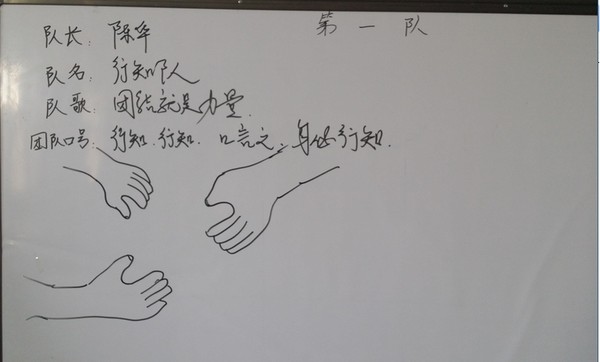 第一队
队长：陈华
队名：行知队
队歌：团结就是力量
团队口号：行知．行知．口言之．身必行知．